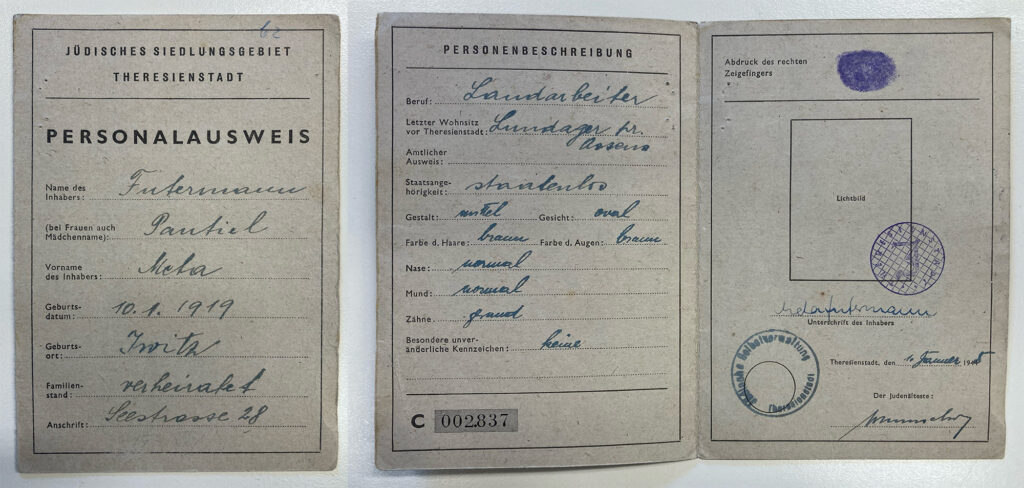 62
JÜDISCHES SIEDLUNGSGEBIET
THERESIENSTADT
PERSONALAUSWEIS
Name des Inhabers: Futermann
(bei Frauen auch Mädchenname): Pantiel
Vorname des Inhabers: Meta
Geburtsdatum: 10. 1. 1919
Geburtsort:
Familienstand: verheiratet
Anschrift: Seestrasse 28
PERSONENBESCHREIBUNG
Beruf: Landarbeiter
Letzter Wohnsitz vor Theresienstadt: Lundager pr. Assens
Amtlicher Ausweis:
Staatsangehörigkeit: staatenlos
Gestalt: mittel Gesicht: oval
Farbe d. Haare: braun Farbe d. Augen: braun
Nase: normal
Mund: normal
Zähne: gesund
Besondere unveränderliche Kennzeichen: keine
C 002837
Abdruck des rechten
Zeigefingers
Lichtbild
Meta Futermann
Unterschrift des Inhabers
Jüdische Selbstverwaltung Theresienstadt
Theresienstadt, den 1. Januar 1945
Der Judenälteste: